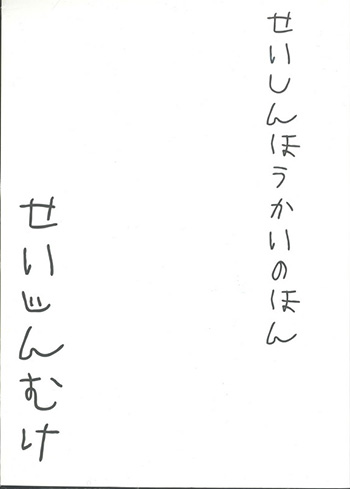 せいしんほうかいのほん
せいじんむけ